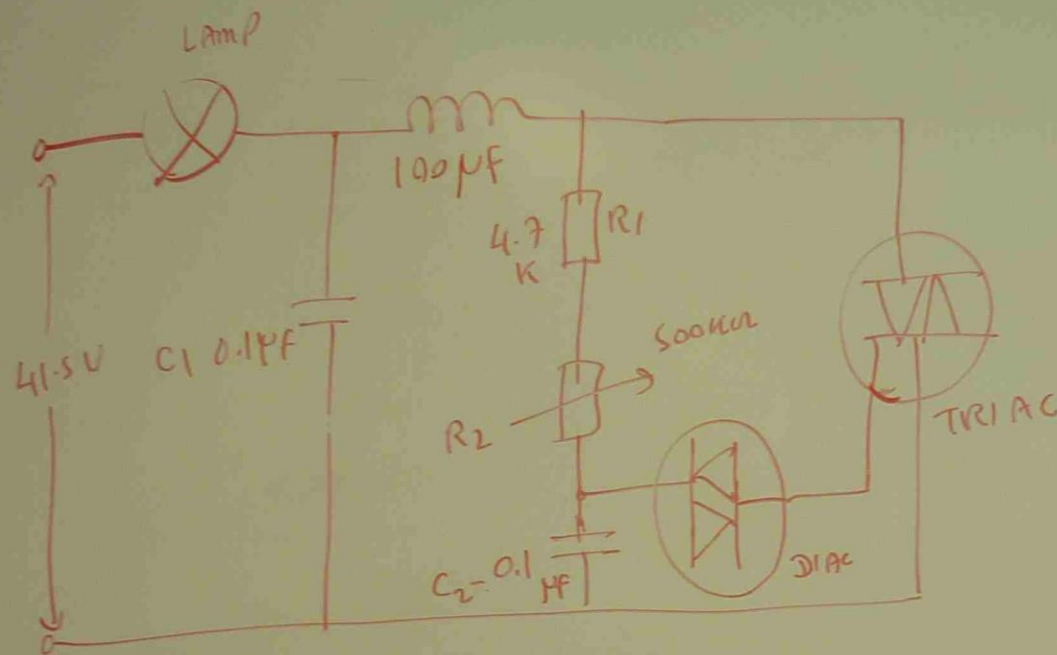 LAMP
100 µF
4.7
K
R1
41.5V
C1 0.1µF
500KΩ
R2
TRIAC
DIAC
C2 - 0.1
µF